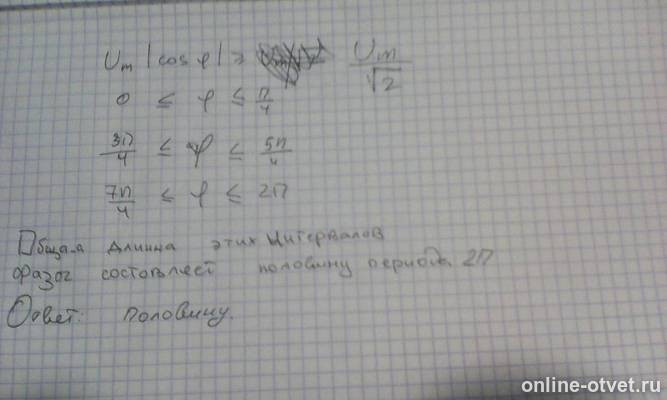 Um |cos φ| ≥ Um/√2
0 ≤ φ ≤ π/4
3π/4 ≤ φ ≤ 5π/4
7π/4 ≤ φ ≤ 2π
Общая длинна этих интервалов
фазог состовляет половину периода 2π
Ответ: половину.
online-otvet.ru